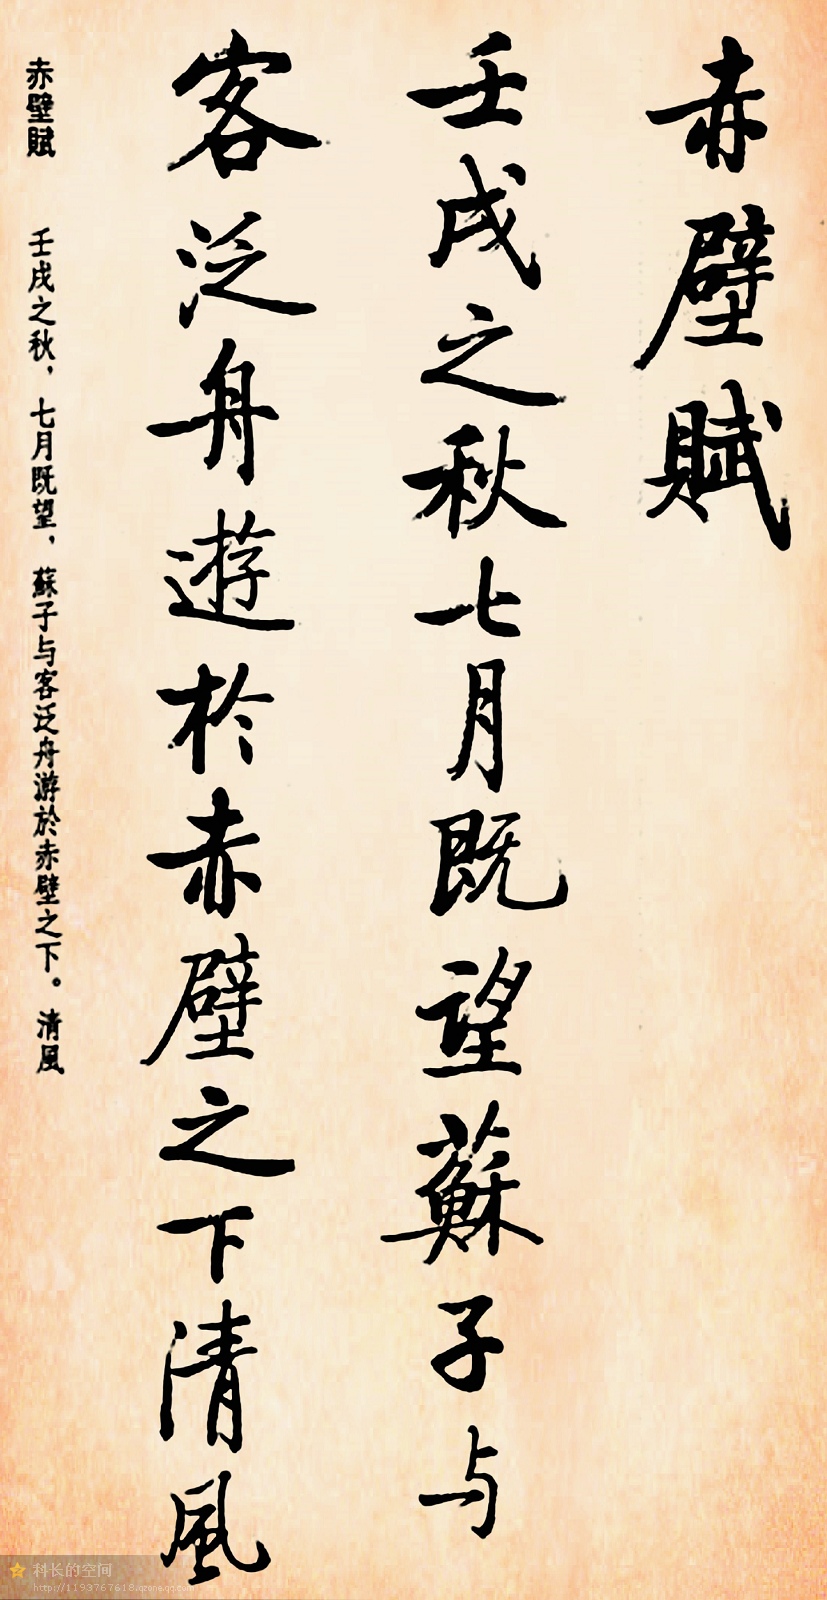 赤壁賦
壬戌之秋七月既望蘇子与
客泛舟遊於赤壁之下清風
赤壁賦 壬戌之秋，七月既望，蘇子与客泛舟游於赤壁之下。清風
科长的空间
http://1193767618.qzone.qq.com